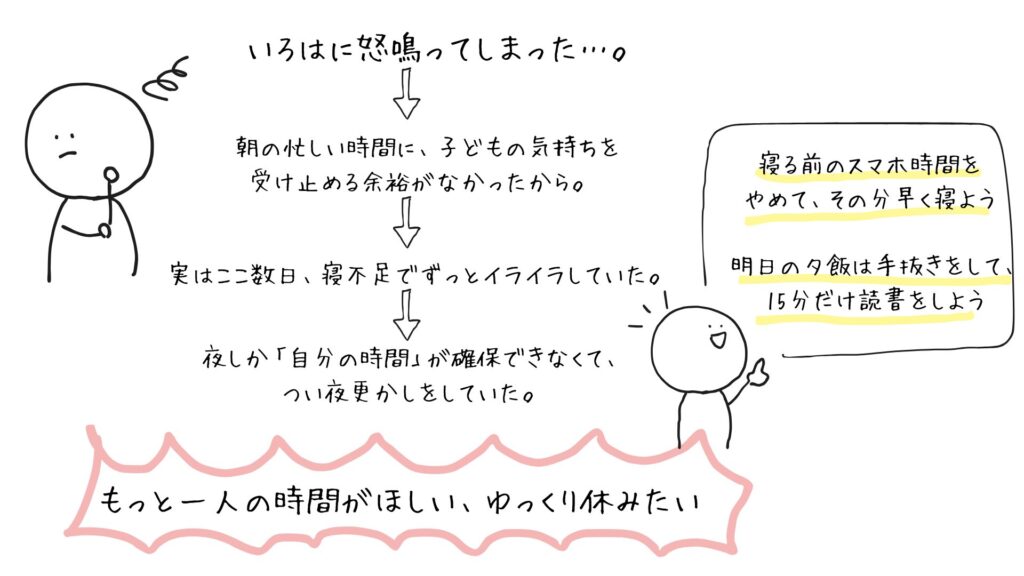 いろはに怒鳴ってしまった…。
朝の忙しい時間に、子どもの気持ちを
受け止める余裕がなかったから。
実はここ数日、寝不足でずっとイライラしていた。
夜しか「自分の時間」が確保できなくて、
つい夜更かしをしていた。
もっと一人の時間がほしい、ゆっくり休みたい
寝る前のスマホ時間を
やめて、その分早く寝よう
明日の夕飯は手抜きをして、
15分だけ読書をしよう